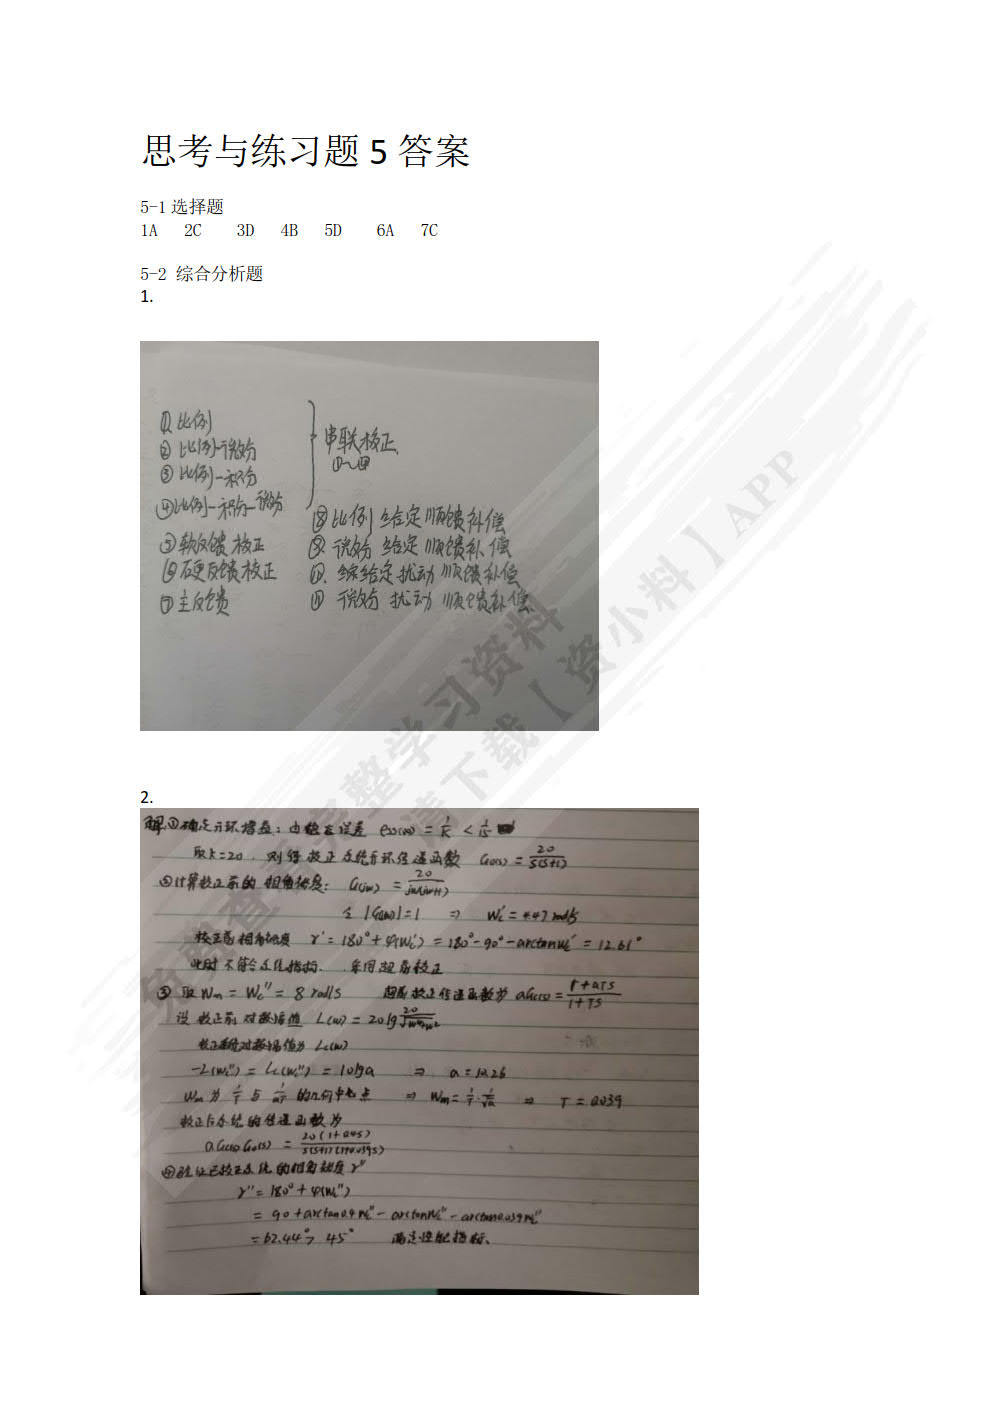 思考与练习题 5 答案
5-1 选择题
1A 2C 3D 4B 5D 6A 7C
5-2 综合分析题
1.
① 比例
② 比例-微分
③ 比例-积分
④ 比例-积分-微分
⑤ 软反馈校正
⑥ 硬反馈校正
⑦ 主反馈
串联校正
①~④
⑧ 比例 给定顺馈补偿
⑨ 微分 给定顺馈补偿
⑩ 给定扰动顺馈补偿
⑪ 微分 扰动 顺馈补偿
2.
解 ① 确定开环增益: 由稳态误差 ess(∞) = 1/K < 1/15
取K=20, 则待校正系统开环传递函数 G0(s) = 20/S(S+1)
② 计算校正前的相角裕度: G(jw) = 20/jw(jw+1)
令 |G(jw)| = 1 ⇒ Wc' = 4.47 rad/s
校正前相角裕度 γ' = 180° + φ(Wc') = 180° - 90° - arctanWc' = 12.61°
此时不符合系统指标, 采用超前校正
③ 取 Wm = Wc'' = 8 rad/s 超前校正传递函数为 aGc(s) = 1+aTS/1+TS
设 校正前 对数幅值 L(w) = 20lg
校正 对数幅值为 Lc(w)
-L(Wc'') = Lc(Wc'') = 10lga ⇒ a = 10.26
Wm 为 1/T 与 1/aT 的几何中心点 ⇒ Wm = 1/T·1/√a ⇒ T = 0.039
校正后系统的传递函数为
aGc(s)G0(s) = 20(1+0.4S)/S(S+1)(1+0.039S)
④ 验证已校正系统的相角裕度 γ''
γ'' = 180° + φ(Wc'')
= 90 + arctan0.4Wc'' - arctanWc'' - arctan0.039Wc''
= 62.44° > 45° 满足性能指标.
免费查看完整学习资料
请下载【资小料】APP